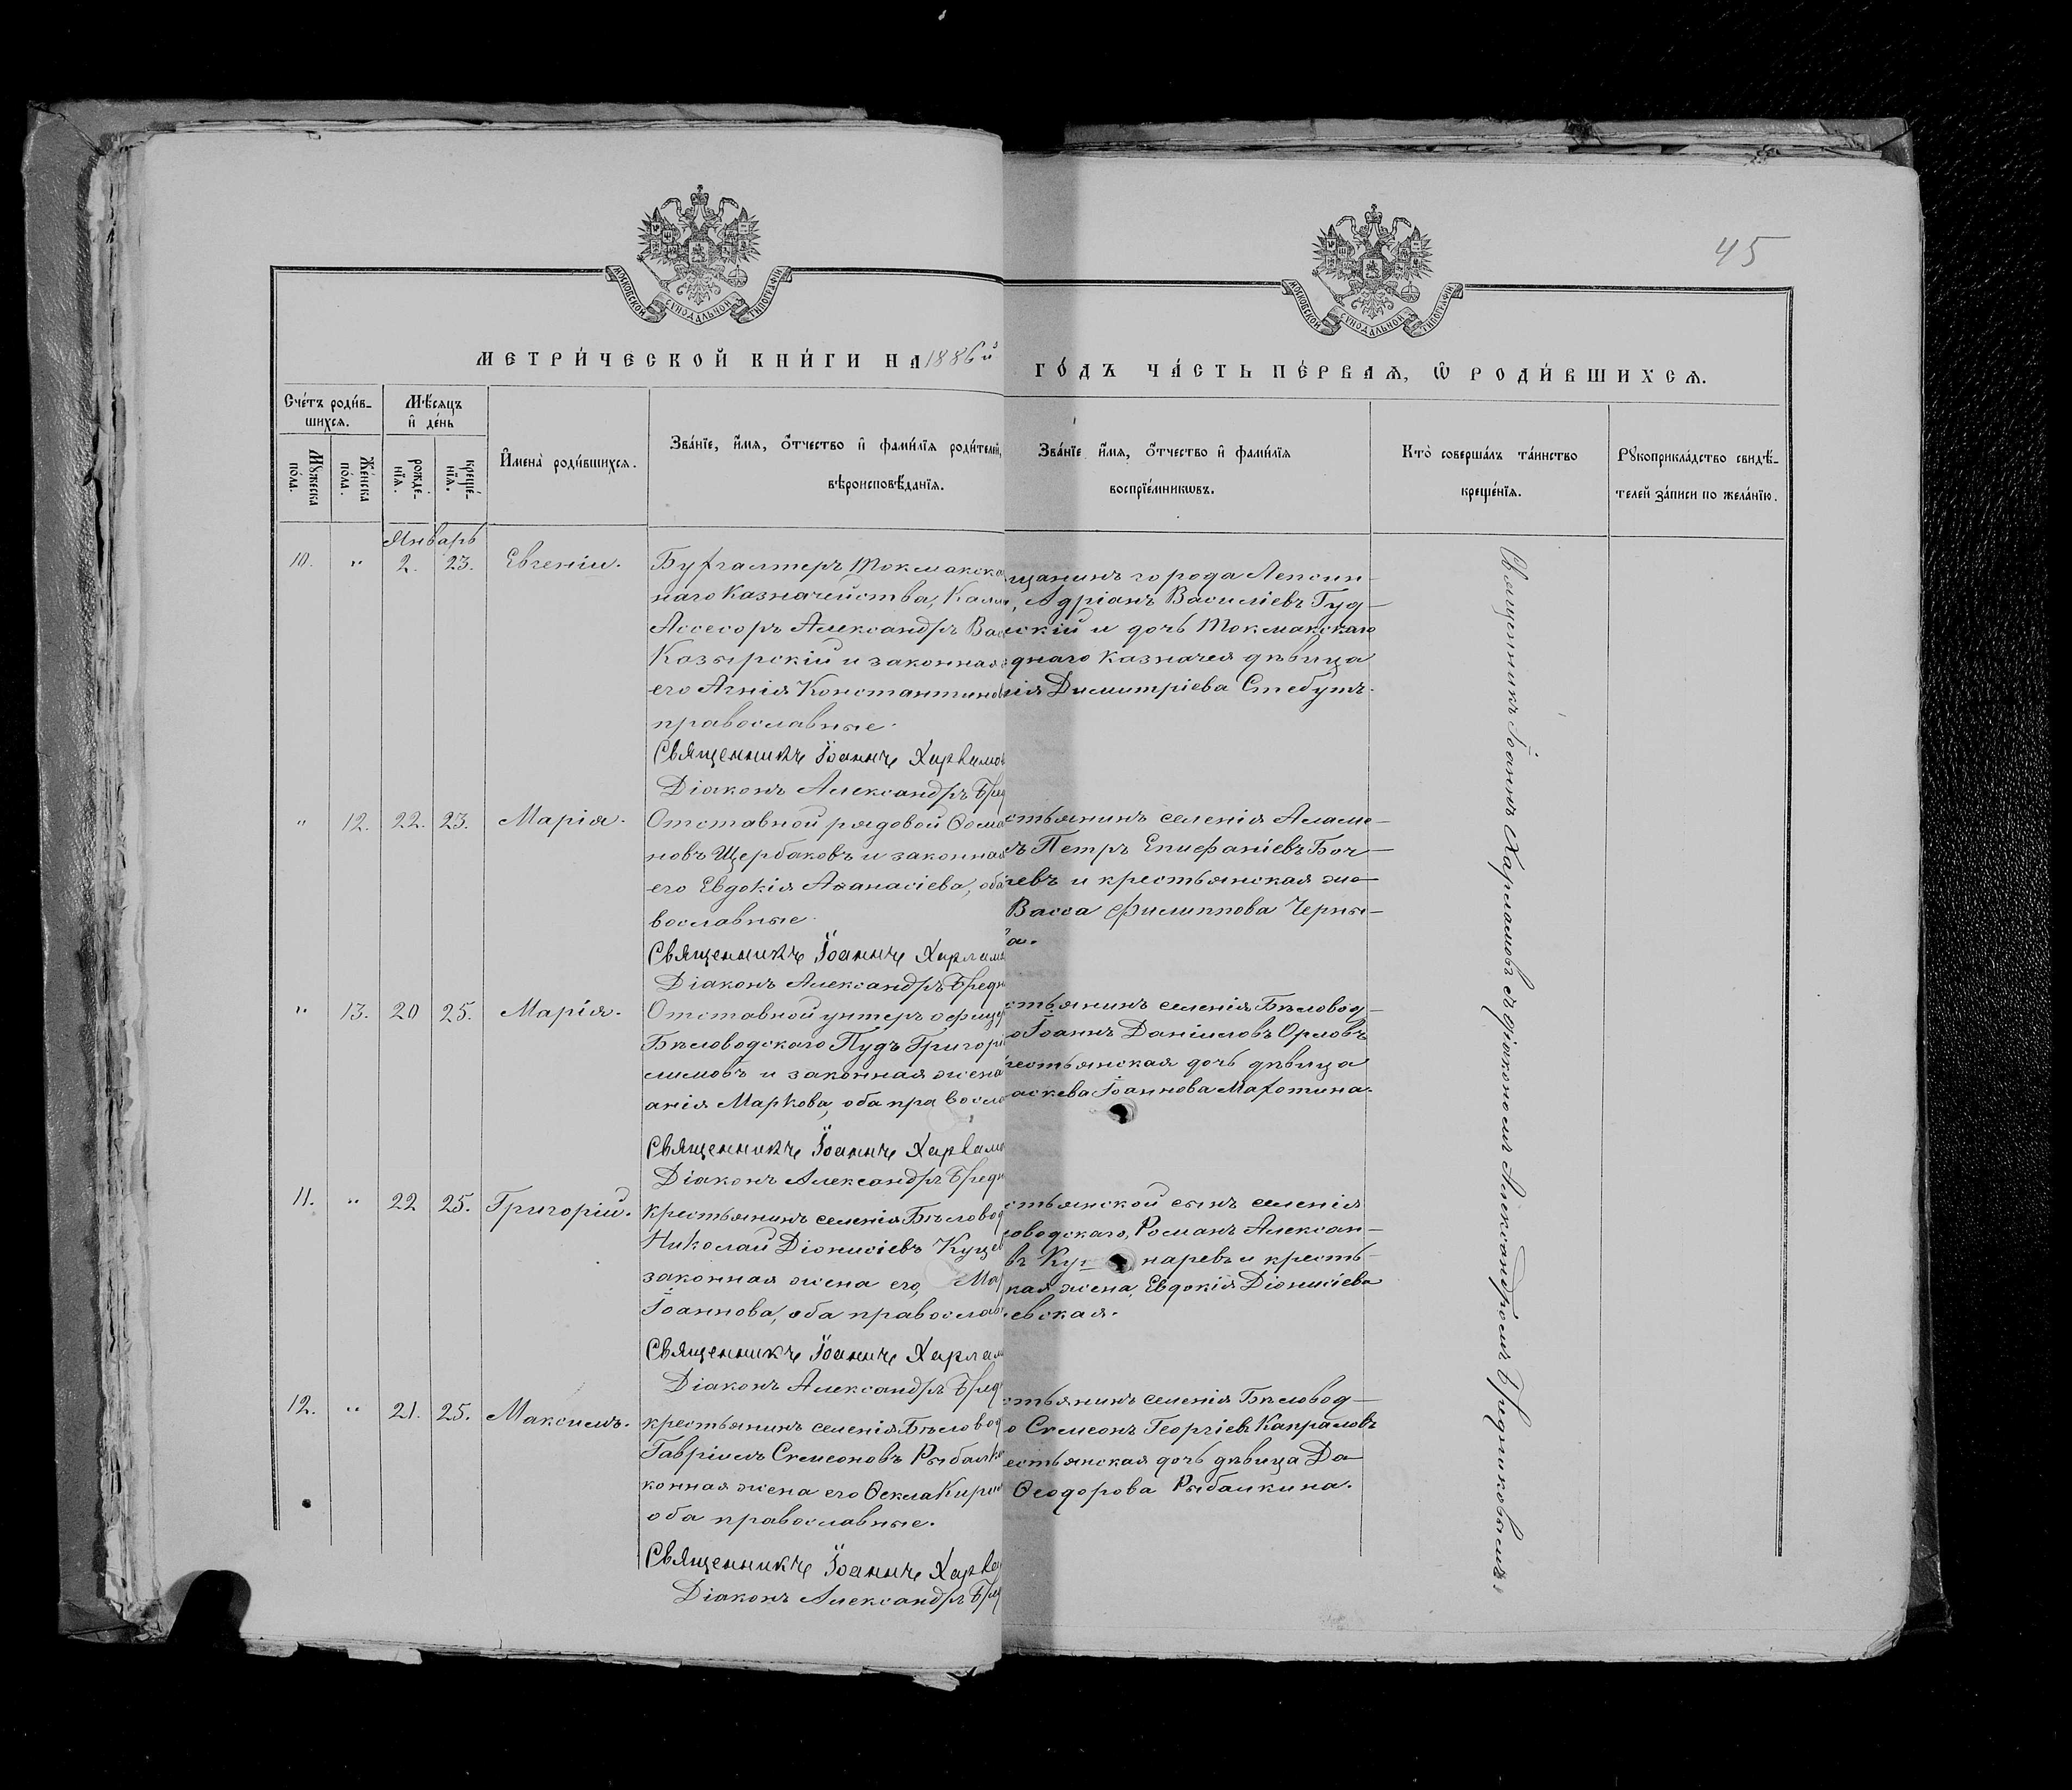 45
МОСКОВСКОЙ СѴНОДАЛЬНОЙ ТИПОГРАФІИ
МОСКОВСКОЙ СѴНОДАЛЬНОЙ ТИПОГРАФІИ
МЕТРИ́ЧЕСКОЙ КНИ́ГИ НА 1886й
ГО́ДЪ ЧА́СТЬ ПЕ́РВАѦ, Ѡ РОДИ́ВШИХСѦ.
Сче́тъ роди́в-
шихсѧ.
Мꙋ́жеска
по́ла.
Же́нска
по́ла.
Мѣ́сѧцъ
и҆ де́нь
рожде́-
нїѧ.
креще́-
нїѧ.
И҆мена̀ роди́вшихсѧ.
Зва́нїе, и҆́мѧ, ѻ҆́тчество и҆ фами́лїѧ роди́телей,
вѣроисповѣ́данїѧ.
Зва́нїе и҆́мѧ, ѻ҆́тчество и҆ фами́лїѧ
воспрїе́мникѡвъ.
Кто̀ соверша́лъ та́инство
креще́нїѧ.
Рꙋкоприкла́дство свидѣ́-
телей за́писи по жела́нїю.
Январь
10. " 2. 23. Евгеній.
Бухгалтеръ Токмакска
наго Казначейства, Кал
Ассесоръ Александръ Вас
Козырскій и законная
его Агнія Константинов
православные.
Священникъ Іоаннъ Харламов
Діаконъ Александръ Бред
щанинъ города Лепсин-
, Адріанъ Василіевъ Гуд-
скій и дочь Токмакскаго
днаго казначея дѣвица
ія Димитріева Стебутъ.
" 12. 22. 23. Марія.
Отставной рядовой Ѳома
новъ Щербаковъ и законная
его Евдокія Аѳанасіева, оба
вославные.
Священникъ Іоаннъ Харлам
Діаконъ Александръ Бредн
стьянинъ селенія Аламе-
ъ Петръ Епифаніевъ Боч-
евъ и крестьянская же-
Васса Филиппова Черны-
а.
" 13. 20 25. Марія.
Отставной унтеръ офице
Бѣловодскаго Пудъ Григорі
лимовъ и законная жена
анія Маркова, оба правосла
Священникъ Іоаннъ Харламо
Діаконъ Александръ Бредн
стьянинъ селенія Бѣловод-
о Іоаннъ Даніиловъ Орловъ
рестьянская дочь дѣвица
аскева Іоаннова Махотина.
11. " 22 25. Григорій.
крестьянинъ селенія Бѣловод
Николай Діонисіевъ Куце
законная жена его, Мар
Іоаннова, оба православ
Священникъ Іоаннъ Харлам
Діаконъ Александръ Бред
стьянской сынъ селенія
оводскаго, Романъ Алексан-
въ Ку наревъ и кресть-
кая жена, Евдокія Діонисіева
евская.
12. " 21. 25. Максимъ.
крестьянинъ селенія Бѣловод
Гавріилъ Симеоновъ Рыбалк
конная жена его Ѳекла Кири
оба православные.
Священникъ Іоаннъ Харла
Діаконъ Александръ Бред
стьянинъ селенія Бѣловод-
о Симеонъ Георгіевъ Капраловъ
естьянская дочь дѣвица Да
Ѳеодорова Рыбалкина.
Священникъ Іоаннъ Харламовъ съ діакономъ Александромъ Бредниковымъ.